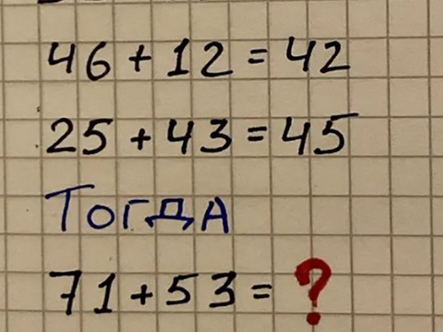 46 + 12 = 42
25 + 43 = 45
Тогда
71 + 53 = ?